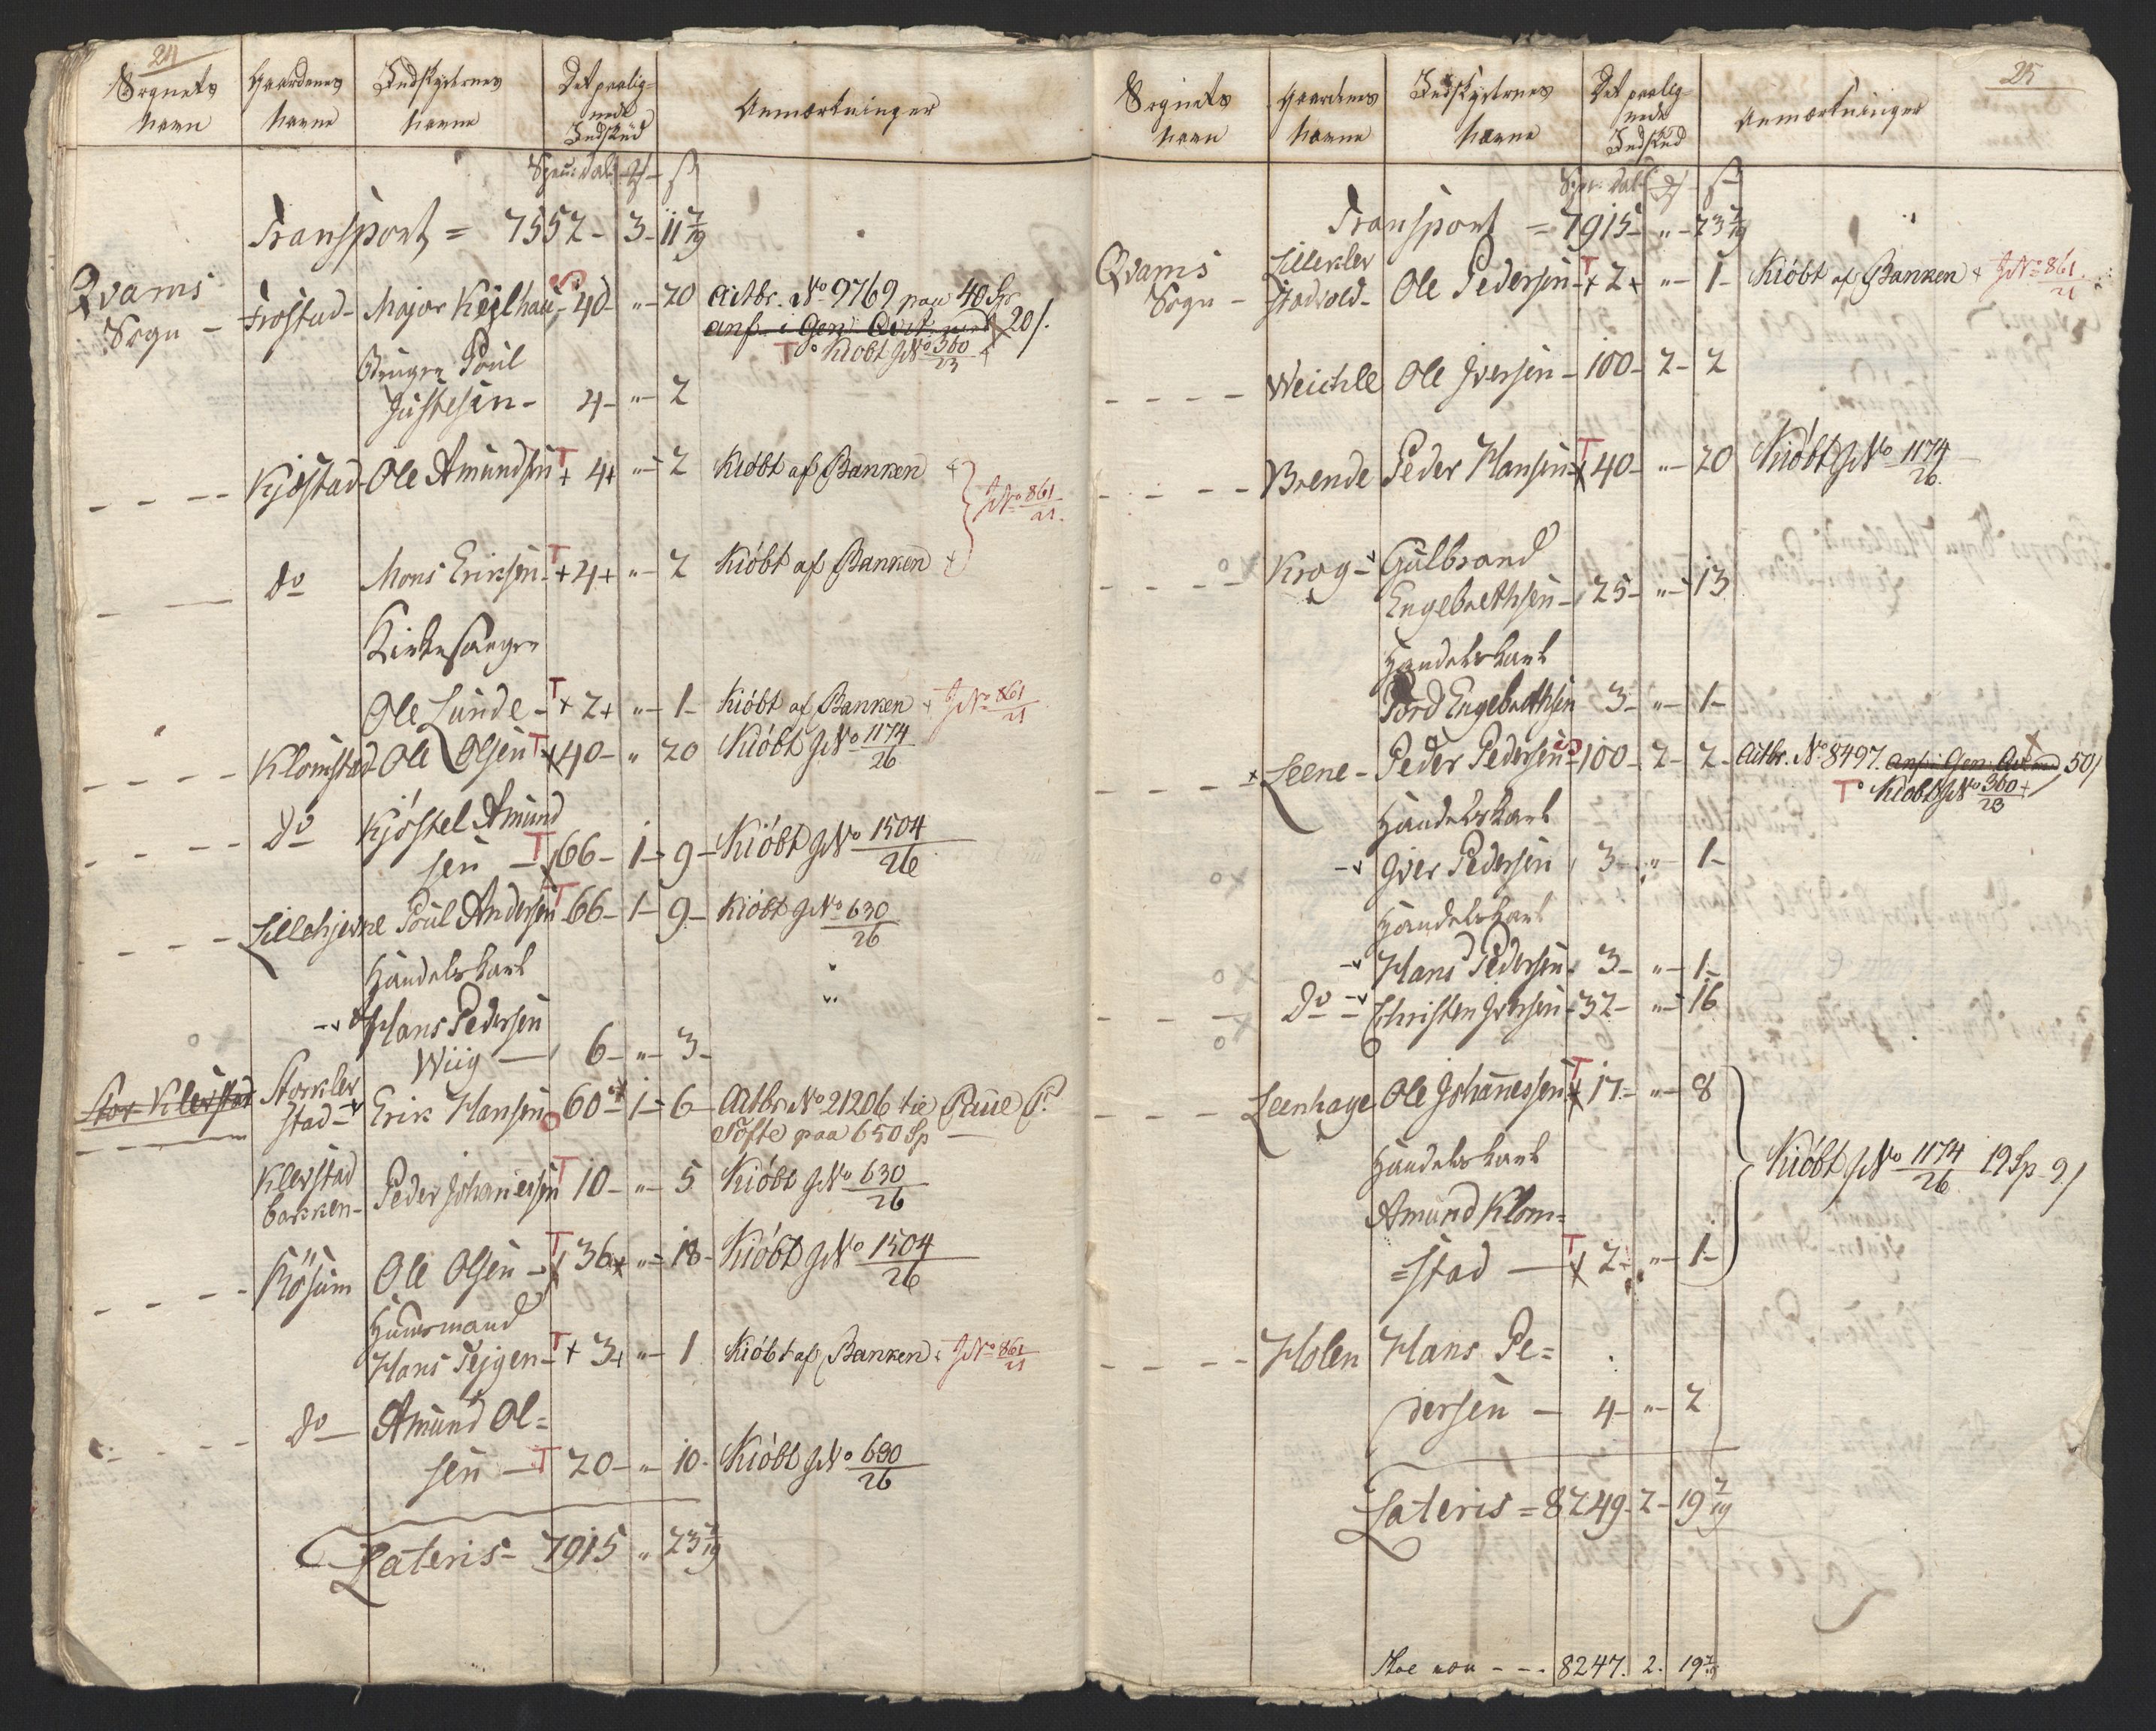 24
Sognets Navn Gaardenes Navne Indskyderens Navne Det paalignede Indskud Anmærkninger
Spec: Dal:
Transport = 7552 - 3 - 11 7/19
Qvams Sogn - Frostad - Major Kejlhau - 40 - " - 20 Actbr. No 9769 paa 40 Sp 20 ß.
T Kiöbt JNo 360/23
Bruger Poul
Justesen - 4 - " - 2
Kjöstad Ole Amundsen T + 4 + " - 2 Kiöbt af Banken
JNo 861/21
do Mons Eriksen - T + 4 + " - 2 Kiöbt af Banken
Kirkesanger
Ole Lunde - T + 2 + " - 1 - Kiöbt af Banken + JNo 861/21
Klomstad Ole Olsen T 40 - " 20 Kiöbt JNo 1174/26
do Kjöstel Amund
sen - T 66 - 1 - 9 - Kiöbt JNo 1504/26
Lillehjerne Poul Andersen T 66 - 1 - 9 - Kiöbt JNo 630/26
Handelskarl
Hans Pedersen
Wiig - 6 - " - 3 -
Stor Klevstad Storklev
stad - Erik Hansen 60 - 1 - 6 - Actbr No 21206 tie
Tofte paa 650 Sp
Klevstad
bakken - Peder Johannesen T 10 - " - 5 Kiöbt JNo 630/26
Rösum Ole Olsen - T 36 " - 18 - Kiöbt JNo 1504/26
Huusmand
Hans Tejgen - T + 3 + " - 1 Kiöbt af Banken + JNo 861/21
do - Amund Ol=
sen - T 20 - " - 10 - Kiöbt JNo 630/26
Lateris - 7915 " 23 7/19
25
Sognets Navn Gaardenes Navne Indskydernes Navne Det paalignede Indskud Anmærkninger
Spec: Dal:
Transport = 7915 - " - 23 7/19
Qvams Sogn - Lilleklev
stadvold - Ole Pedersen - T + 2 + " - 1 - Kiöbt af Banken + JNo 861/21
Weichle Ole Iversen - 100 - 2 - 2
Brende Peder Hansen T 40 - " - 20 Kiöbt JNo 1174/26
Krog - Gulbrand
Engebrethsen - 25 - " - 13
Handelskarl
Tord Engebrethsen 3 - " - 1 -
Leene - Peder Pedersen - 100 - 2 - 2 - Actbr. No 8497. 50 ß
T Kiöbt JNo 360/23
Handelskarl
Iver Pedersen 3 - " - 1 -
Handelskarl
Hans Pedersen - 3 - " - 1 -
do - Christen Iversen - 32 - " - 16
Leenhage Ole Johannessen T 17 - " - 8
Handelskarl
Amund Klom=
=stad - T 2 - " - 1 -
Kiöbt JNo 1174/26 19 Sp 9 ß
Holen Hans Pe=
dersen - 4 - " - 2
Lateris = 8249 - 2 - 19 7/19
8247. 2. 19 7/19